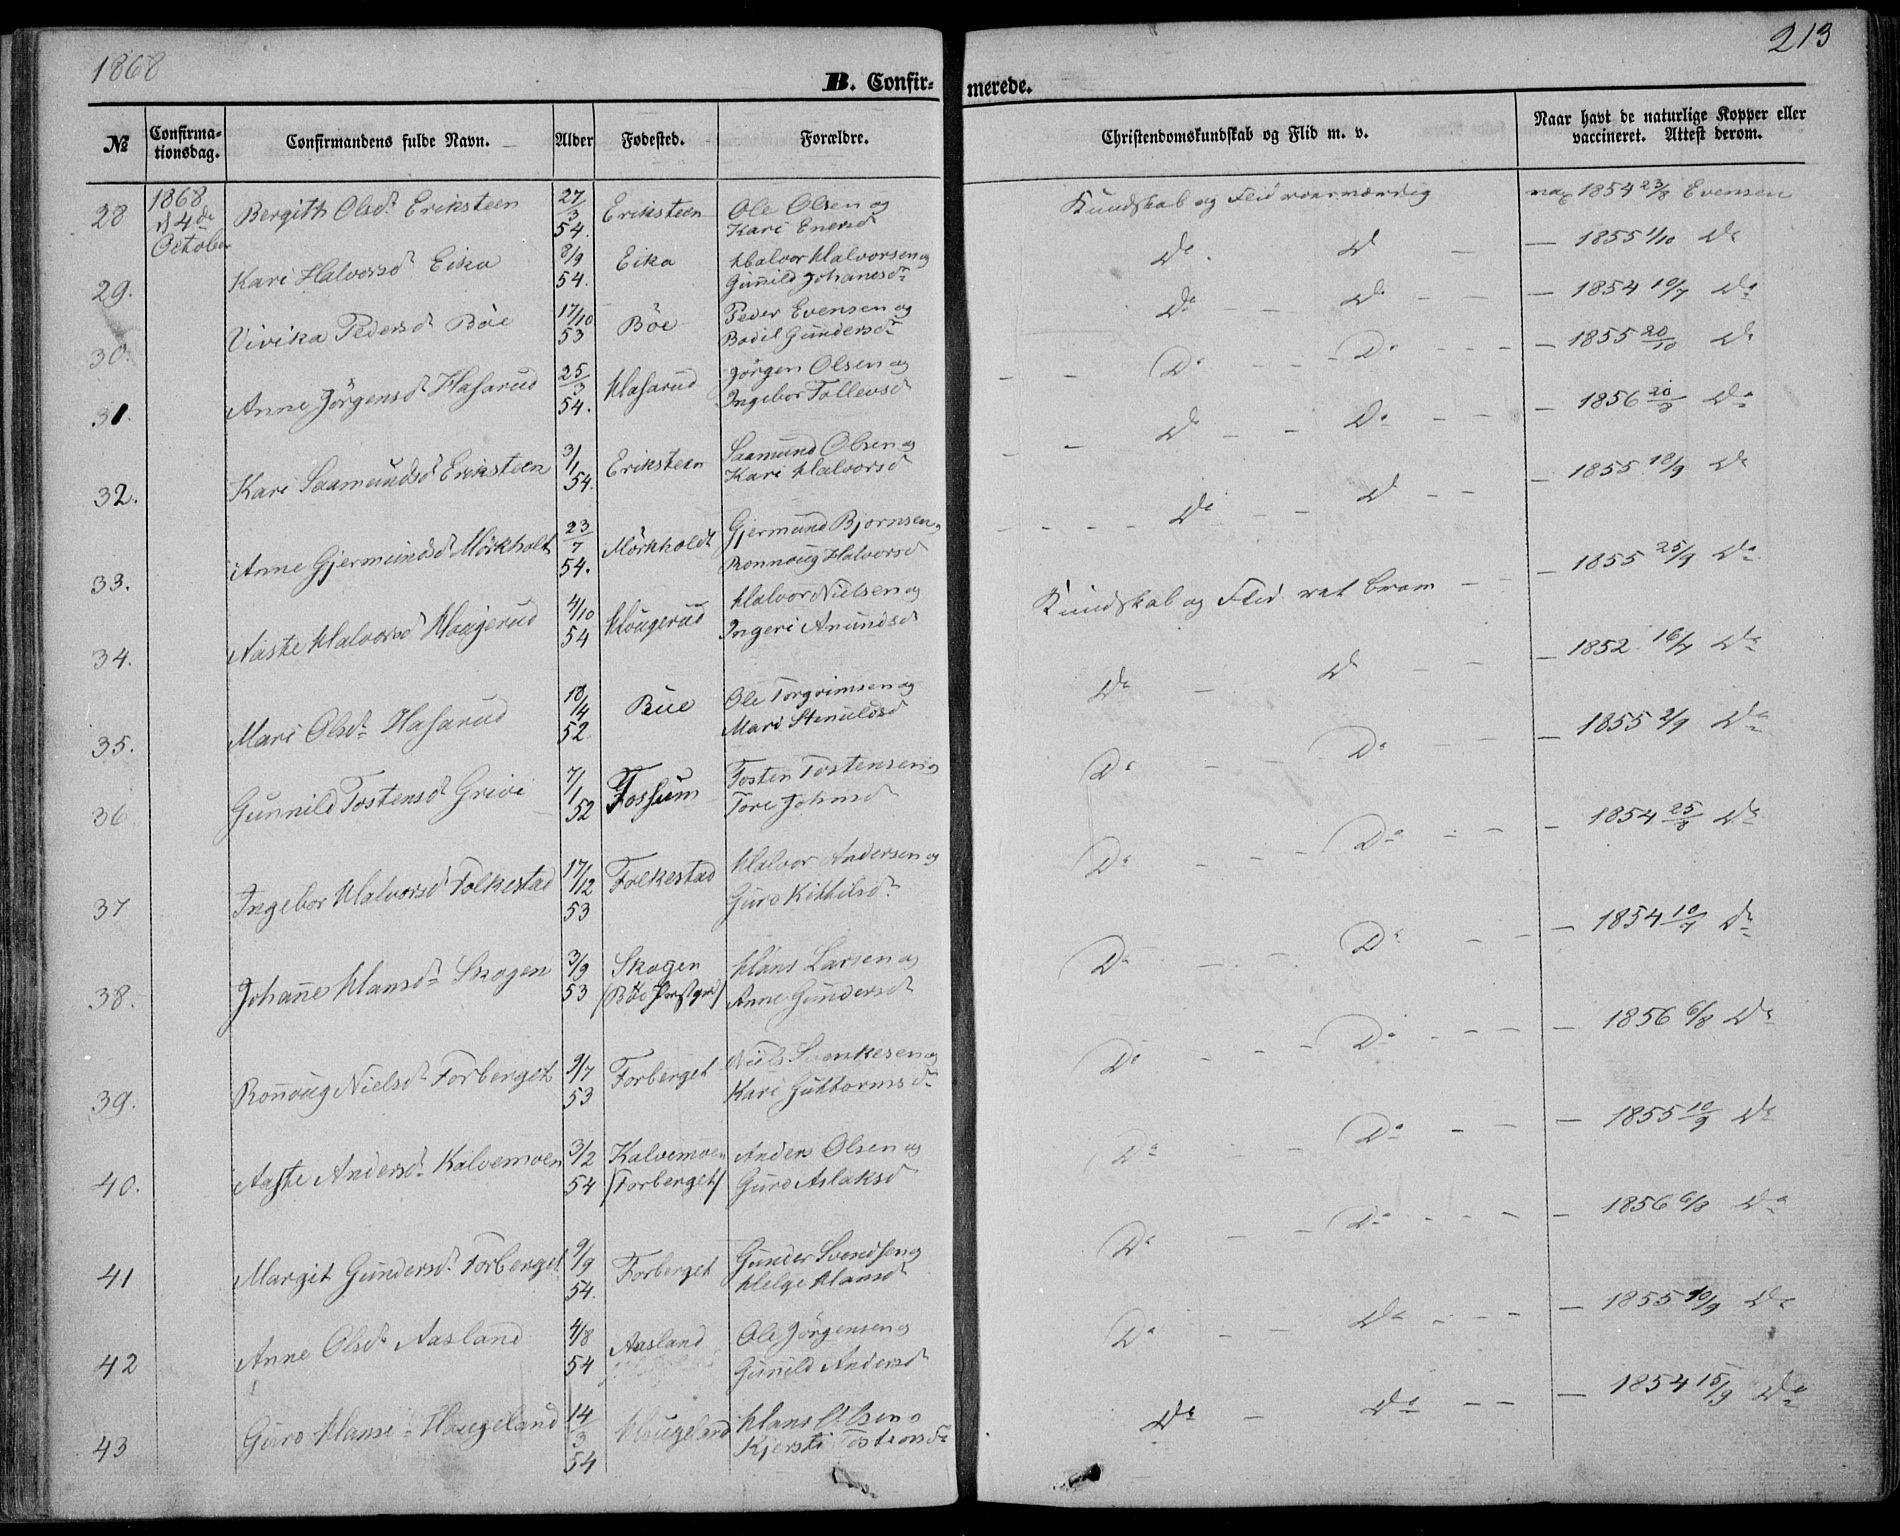 1868
213
B. Confir-
merede.
№
Confirma-
tionsdag.
Confirmandens fulde Navn.
Alder
Fødested.
Forældre.
Christendomskundskab og Flid m. v.
Naar havt de naturlige Kopper eller
vaccineret. Attest derom.
28 1868 d 4de October Bergith Olsd. Eriksteen 27/3 54. Eriksteen Ole Olsen og Kari Enersd Kundskab og Flid roesværdig 1854 23/8 Evensen
29. Kari Halvorsd Eika 8/9 54. Eika Halvor Halvorsen og Gunild Johanesd. Do D — 1855 1/10 Do
30. Vivika Pedersd Böe 17/10 53 Böe Peder Evensen og Bodil Gundersd. Do Do — 1854 10/7 Do
31. Anne Jörgensd Hasarud 25/3 54. Hasarud Jörgen Olsen og Ingebor Tollevsd Do Do — 1855 20/10 Do
32. Kari Saamundsd Eriksteen 3/1 54. Eriksteen Saamund Olsen og Kari Halvorsd Do Do — 1856 20/8 Do
33. Anne Gjermundsd Mørkholt 23/7 54. Mörkholdt Gjermund Bjørnsen og Ronnoug Halvorsd Do D — 1855 18/9 Do
34. Aaste Halvorsd Hougerud 4/10 54 Hougerud Halvor Nielsen og Ingeri Anundsd Kundskab og Flid ret bram — 1855 25/9 Do
35. Mari Olsd. Hasarud 18/4 52 Büe Ole Torgrimsen og Mari Stenuldsd Do D — 1852 16/7 Do
36 Gunnild Tostensd Grivi 7/1 52 Fossum Tosten Tostensen og Tore Johnsd Do Do — 1855 2/9 Do
37 Ingebor Halvorsd Folkestad 17/12 53 Folkestad Halvor Andersen og Guro Kittilsd. Do Do — 1854 25/8 Do
38. Johanne Hansd. Skogen 3/9 53 Skogen Hans Larsen og Anne Gundersd. Do Do — 1854 10/7 Do
39. Ronnoug Nielsd. Forberget 9/7 53 Forberget Niels Svenkesen og Kari Guttormsd. Do Do — 1856 6/8 Do
40. Aaste Andersd. Kalvemoen 3/2 54 Kalvemoen (Forberget) Anders Olsen og Guro Aslaksd Do Do — 1855 10/9 Do
41 Margit Gundersd. Forberget 9/9 54. Forberget Gunder Svendsen og Helge Hansd. Do Do — 1856 6/8 Do
42 Anne Olsd. Aasland 4/8 54 Aasland Ole Jörgensen og Gunild Andersd. Do Do — 1855 10/9 Do
43 Guro Hansd. Hougeland 14/3 54 Hougeland Hans Olsen o Kjersti Tostensd. Do Do — 1854 15/9 Do